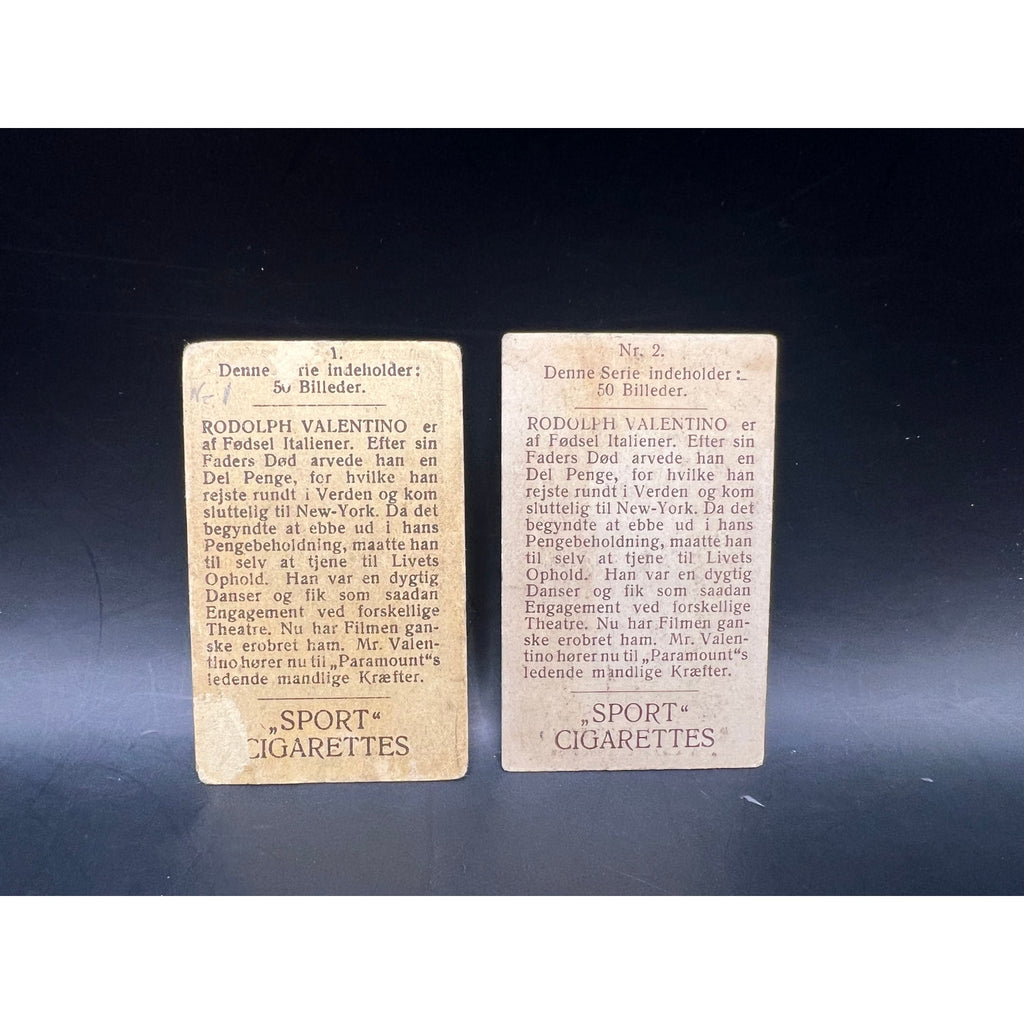 1.
Denne rie indeholder:
50 Billeder.
N-1
RODOLPH VALENTINO er
af Fødsel Italiener. Efter sin
Faders Død arvede han en
Del Penge, for hvilke han
rejste rundt i Verden og kom
sluttelig til New-York. Da det
begyndte at ebbe ud i hans
Pengebeholdning, maatte han
til selv at tjene til Livets
Ophold. Han var en dygtig
Danser og fik som saadan
Engagement ved forskellige
Theatre. Nu har Filmen gan-
ske erobret ham. Mr. Valen-
tino hører nu til „Paramount“s
ledende mandlige Kræfter.
„SPORT“
CIGARETTES
Nr. 2.
Denne Serie indeholder:
50 Billeder.
RODOLPH VALENTINO er
af Fødsel Italiener. Efter sin
Faders Død arvede han en
Del Penge, for hvilke han
rejste rundt i Verden og kom
sluttelig til New-York. Da det
begyndte at ebbe ud i hans
Pengebeholdning, maatte han
til selv at tjene til Livets
Ophold. Han var en dygtig
Danser og fik som saadan
Engagement ved forskellige
Theatre. Nu har Filmen gan-
ske erobret ham. Mr. Valen-
tino hører nu til „Paramount“s
ledende mandlige Kræfter.
„SPORT“
CIGARETTES